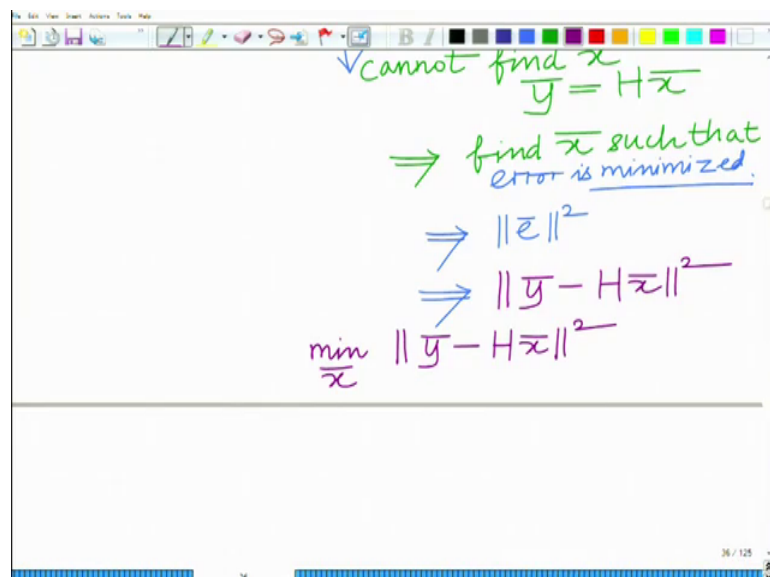 File Edit View Insert Actions Tools Help
B I
cannot find x̄
ȳ = Hx̄
⇒ find x̄ such that
error is minimized.
⇒ ‖ē‖²
⇒ ‖ȳ − Hx̄‖²
min ‖ȳ − Hx̄‖²
x̄
36 / 125